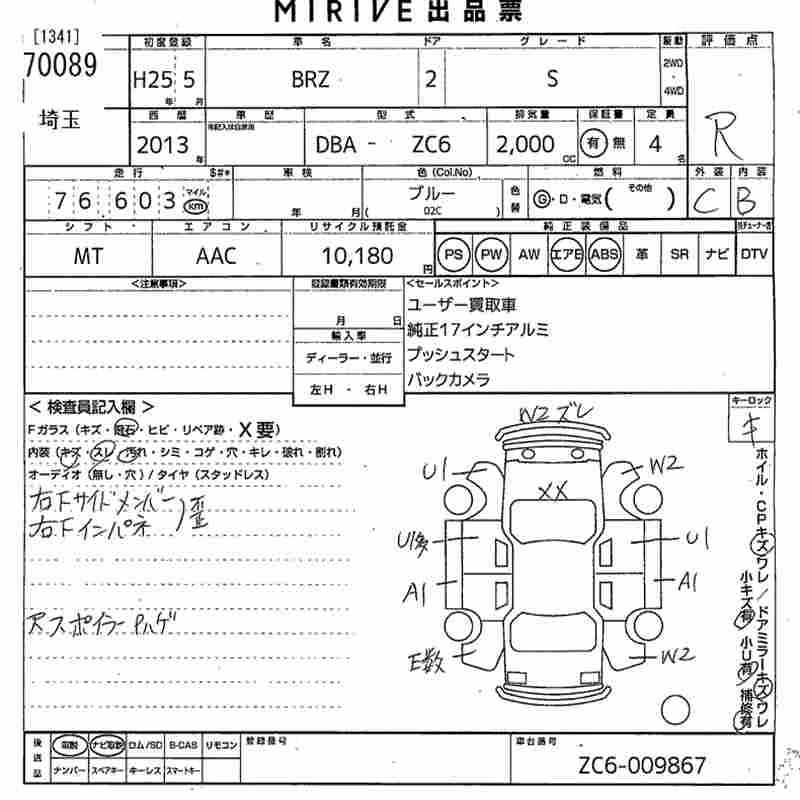 MIRIVE 出品票
[1341]
70089
埼玉
初度登録 車名 ドア グレード 駆動 評価点
H25 年 5 月 BRZ 2 S 2WD・4WD
R
西暦 車歴 型式 排気量 保証書 定員
2013 年 DBA - ZC6 2,000 CC 有 無 4 名
走行 $#* 車検 色 (Col.No) 燃料 外装 内装
76,603 マイル km 年 月 ブルー ( 02C ) 色替 G・D・電気 ( その他 ) C B
シフト・ エアコン リサイクル預託金 純正装備品
MT AAC 10,180 円 PS PW AW エアB ABS 革 SR ナビ DTV
<注意事項> 登録書類有効期限 <セールスポイント>
月 日
輸入車
ディーラー・並行
左H ・ 右H
ユーザー買取車
純正17インチアルミ
プッシュスタート
バックカメラ
< 検査員記入欄 >
Fガラス (キズ・飛石・ヒビ・リペア跡・X要)
内装 (キズ・スレ・汚れ・シミ・コゲ・穴・キレ・破れ・割れ)
オーディオ (無し・穴) / タイヤ (スタッドレス)
右Fサイドメンバー
右Fインパネ
歪
Rスポイラー Pハゲ
W2 ズレ
U1 W2
XX
U1多 U1
A1 A1
E数 W2
キーロック
キ
ホイル・CPキズワレ / ドアミラーキズワレ
小キズ有 小U有 補修有
後送品 取説 ナビ取説 ロム/SD B-CAS リモコン
ナンバー スペアキー キーレス スマートキー
登録番号 車台番号
ZC6-009867